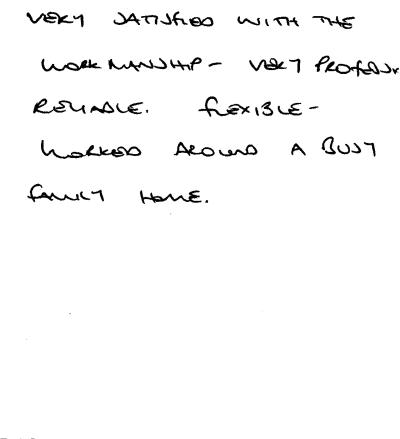 VERY SATISFIED WITH THE
WORKMANSHIP - VERY
RELIABLE. FLEXIBLE -
WORKED AROUND A BUSY
FAMILY HOME.